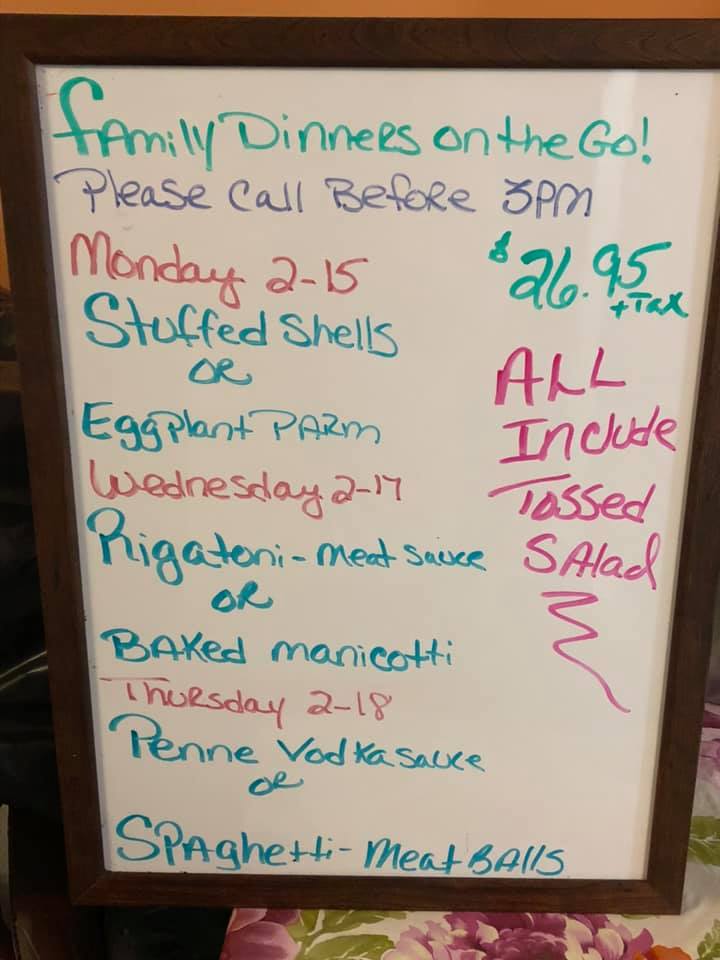 Family Dinners on the Go!
Please Call Before 3PM
Monday 2-15
Stuffed Shells
OR
Eggplant PARM
Wednesday 2-17
Rigatoni - meat sauce
OR
BAKed manicotti
Thursday 2-18
Penne Vodka sauce
OR
SPAghetti - Meat BAlls
$26.95
+ Tax
ALL
Include
Tossed
SAlad